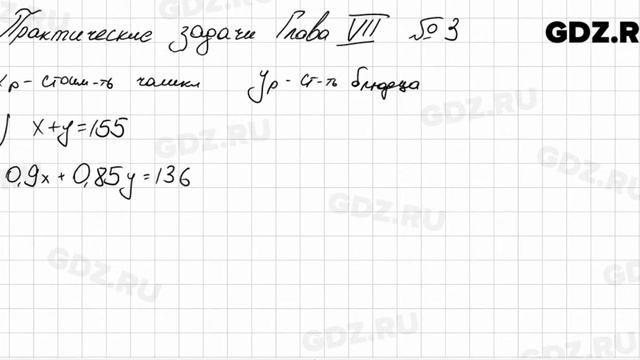 Практические задачи Глава VII № 3
GDZ.R
xр - стоим-ть чашки yр - ст-ть блюдца
x+y=155
0,9x + 0,85y = 136
GDZ.RU
GDZ.RU
GDZ.RU
GDZ.RU
GDZ.RU
GDZ.RU
GDZ.RU